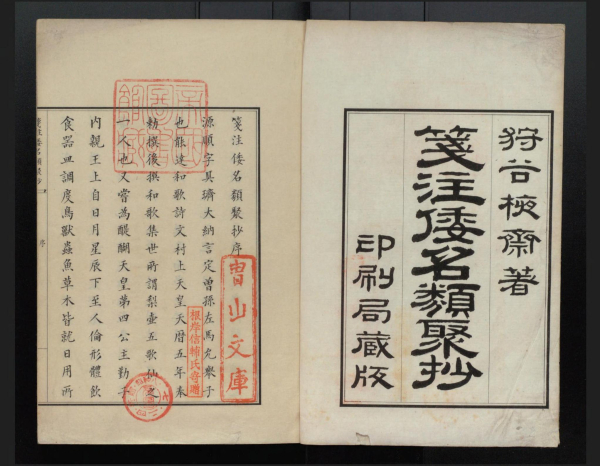 狩谷棭齋著
箋注倭名類聚抄
印刷局藏版
箋注倭名類聚抄序
源順字具瓊大納言定曾孫左馬允擧子
也能達和歌詩文村上天皇天曆五年奉
勅撰後撰和歌集世所謂梨壺五歌仙之
一人也又嘗爲醍醐天皇第四公主勤子
內親王上自日月星辰下至人倫形體飮
食器皿調度鳥獸蟲魚草木皆就日用所
序
曺山文庫
根岸信輔氏寄贈